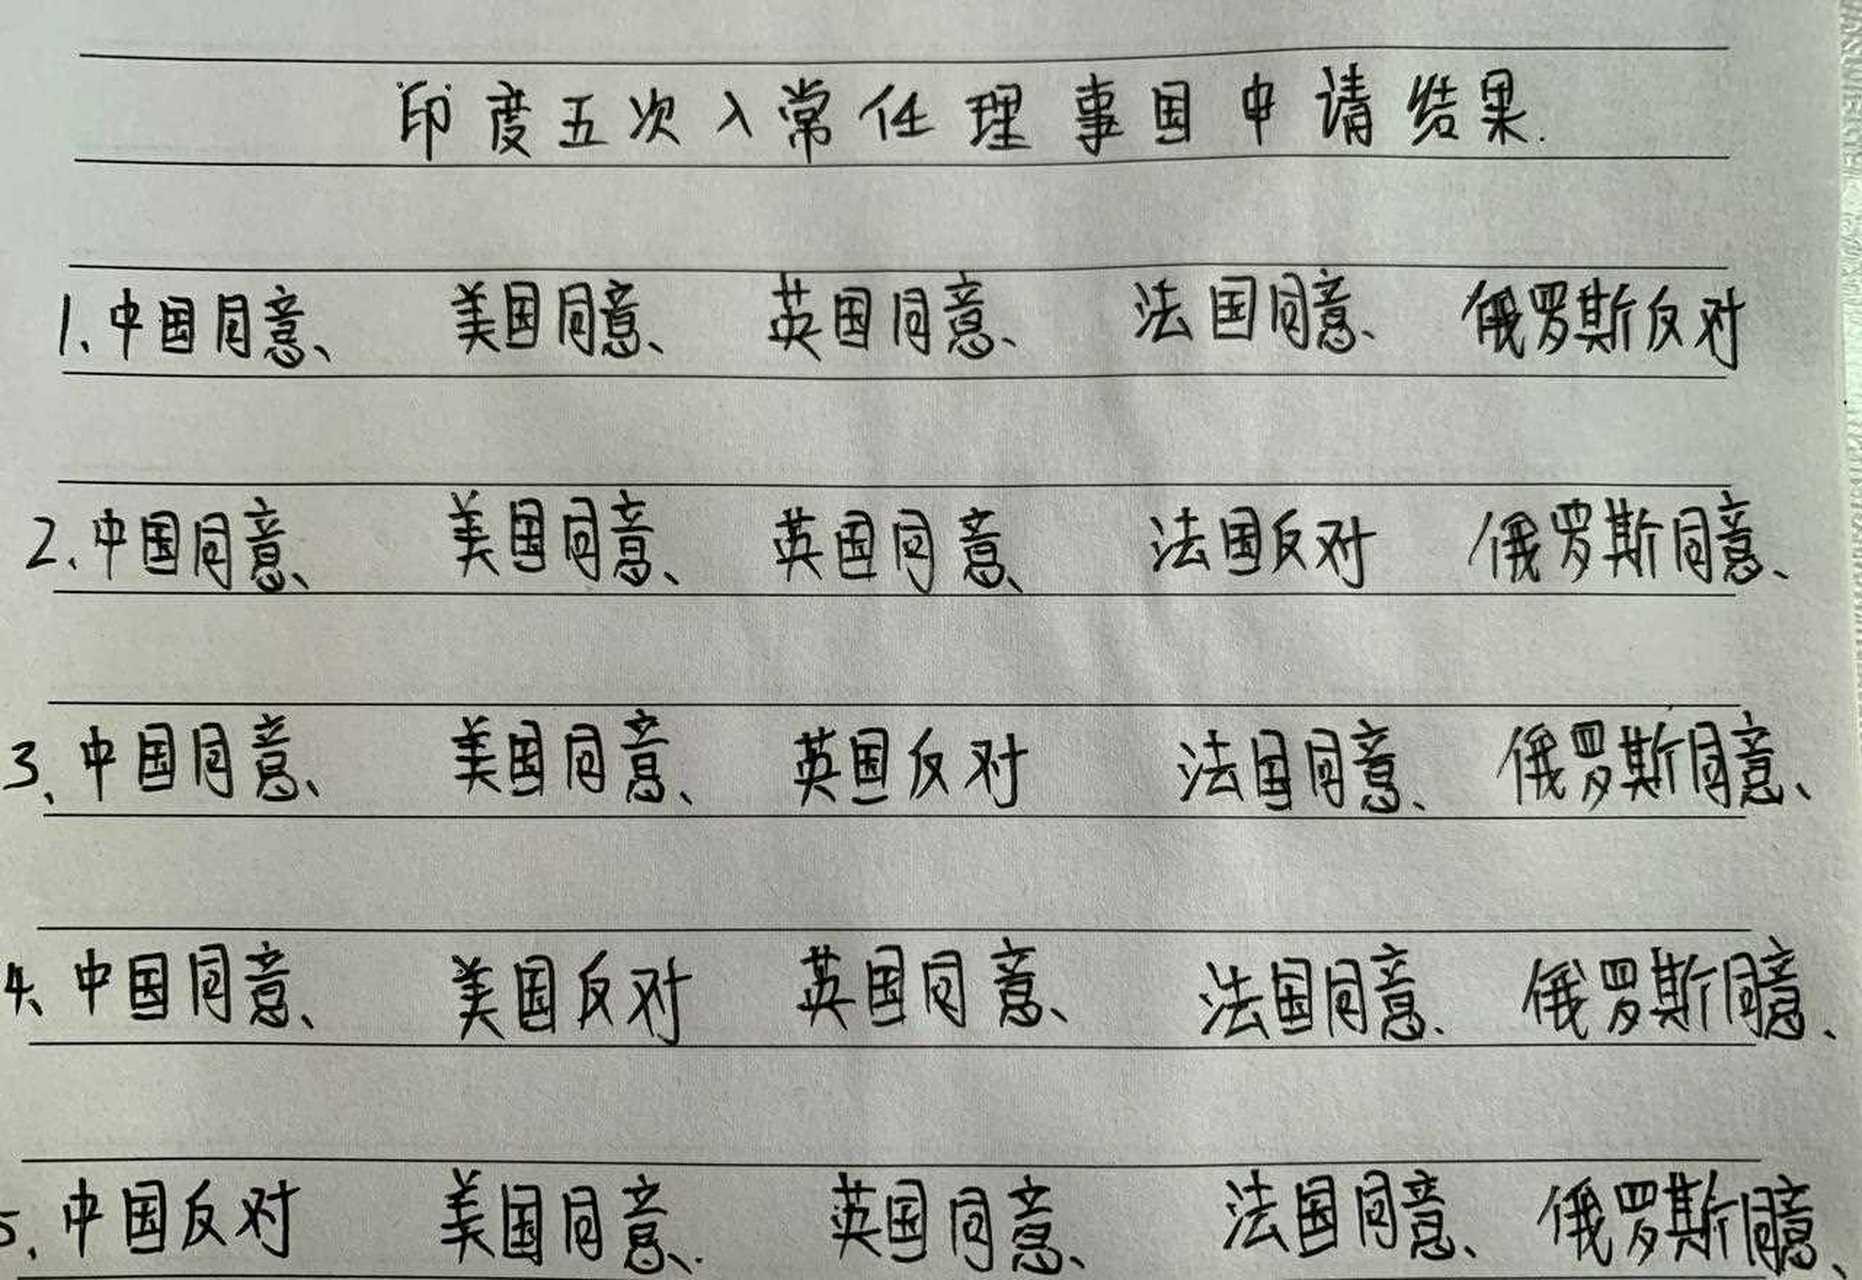 印度五次入常任理事国申请结果.
1、中国同意、 美国同意、 英国同意、 法国同意、 俄罗斯反对
2、中国同意、 美国同意、 英国同意、 法国反对 俄罗斯同意、
3、中国同意、 美国同意、 英国反对 法国同意、 俄罗斯同意、
4、中国同意、 美国反对 英国同意、 法国同意、 俄罗斯同意、
5、中国反对 美国同意、 英国同意、 法国同意、 俄罗斯同意、